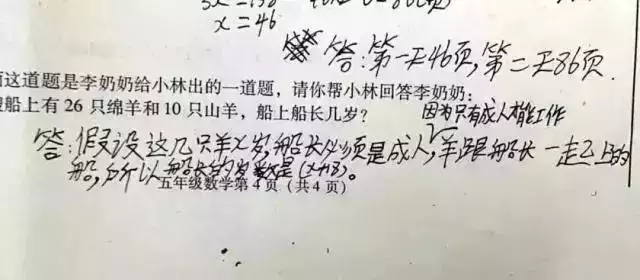 x=46
答:第一天46页,第二天86页.
面这道题是李奶奶给小林出的一道题,请你帮小林回答李奶奶:
船上有26只绵羊和10只山羊,船上船长几岁?
因为只有成人才能工作
答:假设这几只羊x岁,船长必须是成人,羊跟船长一起上的
船,所以船长的岁数是(x+18)。
五年级数学第4页(共4页)